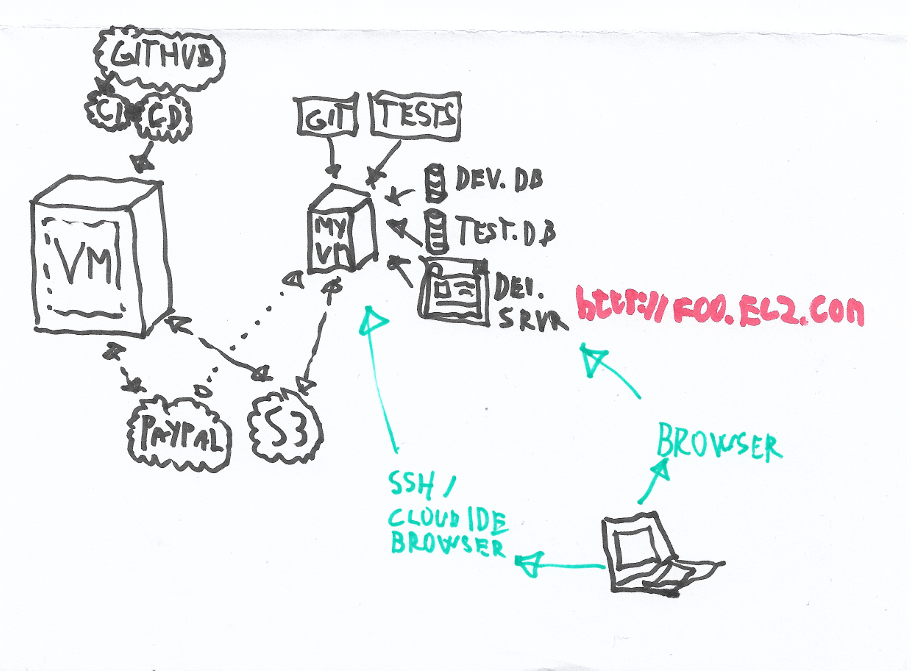 GITHUB
CI CD
GIT
TESTS
DEV.DB
MY
VM
TEST.DB
VM
DEV.
SRVR
http://FOO.EC2.COM
PAYPAL
S3
BROWSER
SSH/
CLOUD IDE
BROWSER